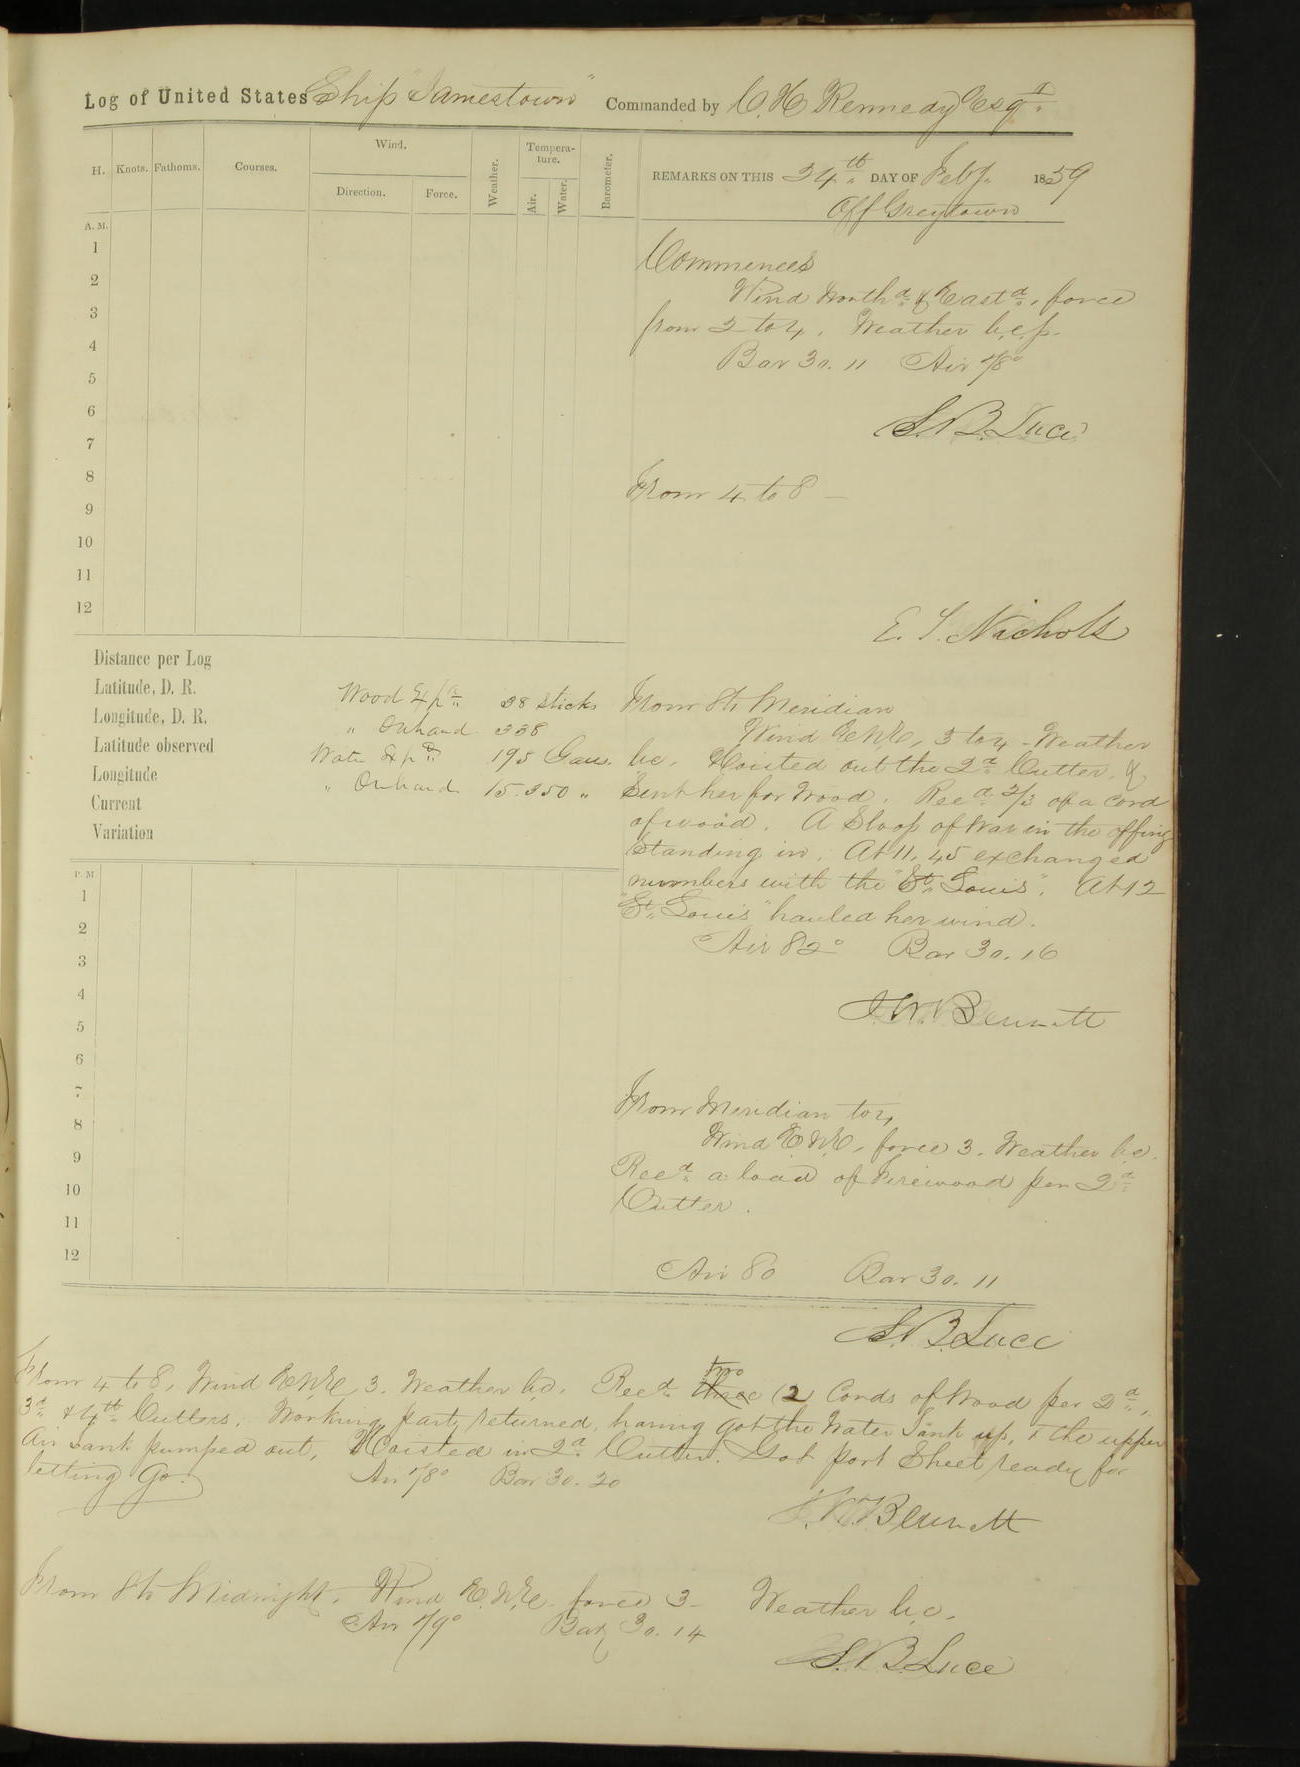 Log of United States Ship "Jamestown" Commanded by C. H. Kennedy Esqr.
H. Knots. Fathoms. Courses. Wind. Direction. Force. Weather. Tempera-ture. Air. Water. Barometer.
REMARKS ON THIS 24th DAY OF Feby. 1859
Off Greytown
A. M.
1
2
3
4
5
6
7
8
9
10
11
12
Commences
Wind Northd. & Eastd., force
from 2 to 4. Weather b.c.p.
Bar 30.11 Air 78°
S. B. Luce
From 4 to 8 –
E. T. Nichols
Distance per Log
Latitude, D. R.
Longitude, D. R.
Latitude observed
Longitude
Current
Variation
Wood Expd. 28 sticks
" Onhand 338
Wate Expd 195 Galls.
" Onhand 15.350 "
From 8 to Meridian
Wind ENE, 3 to 4 - Weather
bc. Hoisted out the 2d. Cutter, &
Sent her for Wood. Recd. 2/3 of a cord
of wood. A Sloop of War in the offing
Standing in. At 11.45 exchanged
numbers with the "St. Louis". At 12
"St. Louis" hauled her wind.
Air 82° Bar 30.16
J. W. Bennett
P. M.
1
2
3
4
5
6
7
8
9
10
11
12
From Meridian to 4
Wind ENE, force 3. Weather bc.
Recd. a load of Firewood per 2d.
Cutter.
Air 80 Bar 30.11
S. B. Luce
From 4 to 8, Wind ENE 3. Weather bc. Recd. three two (2) Cords of Wood per 2d.,
3d. & 4th. Cutters. Working party returned, having got the Water Tank up, & the upper
Air tank pumped out, Hoisted in 2d. Cutter. Got port Sheet ready for
letting Go. Air 78° Bar 30.20
J. W. Bennett
From 8 to Midnight. Wind E.N.E. force 3 - Weather b.c.
Air 79° Bar 30.14
S. B. Luce